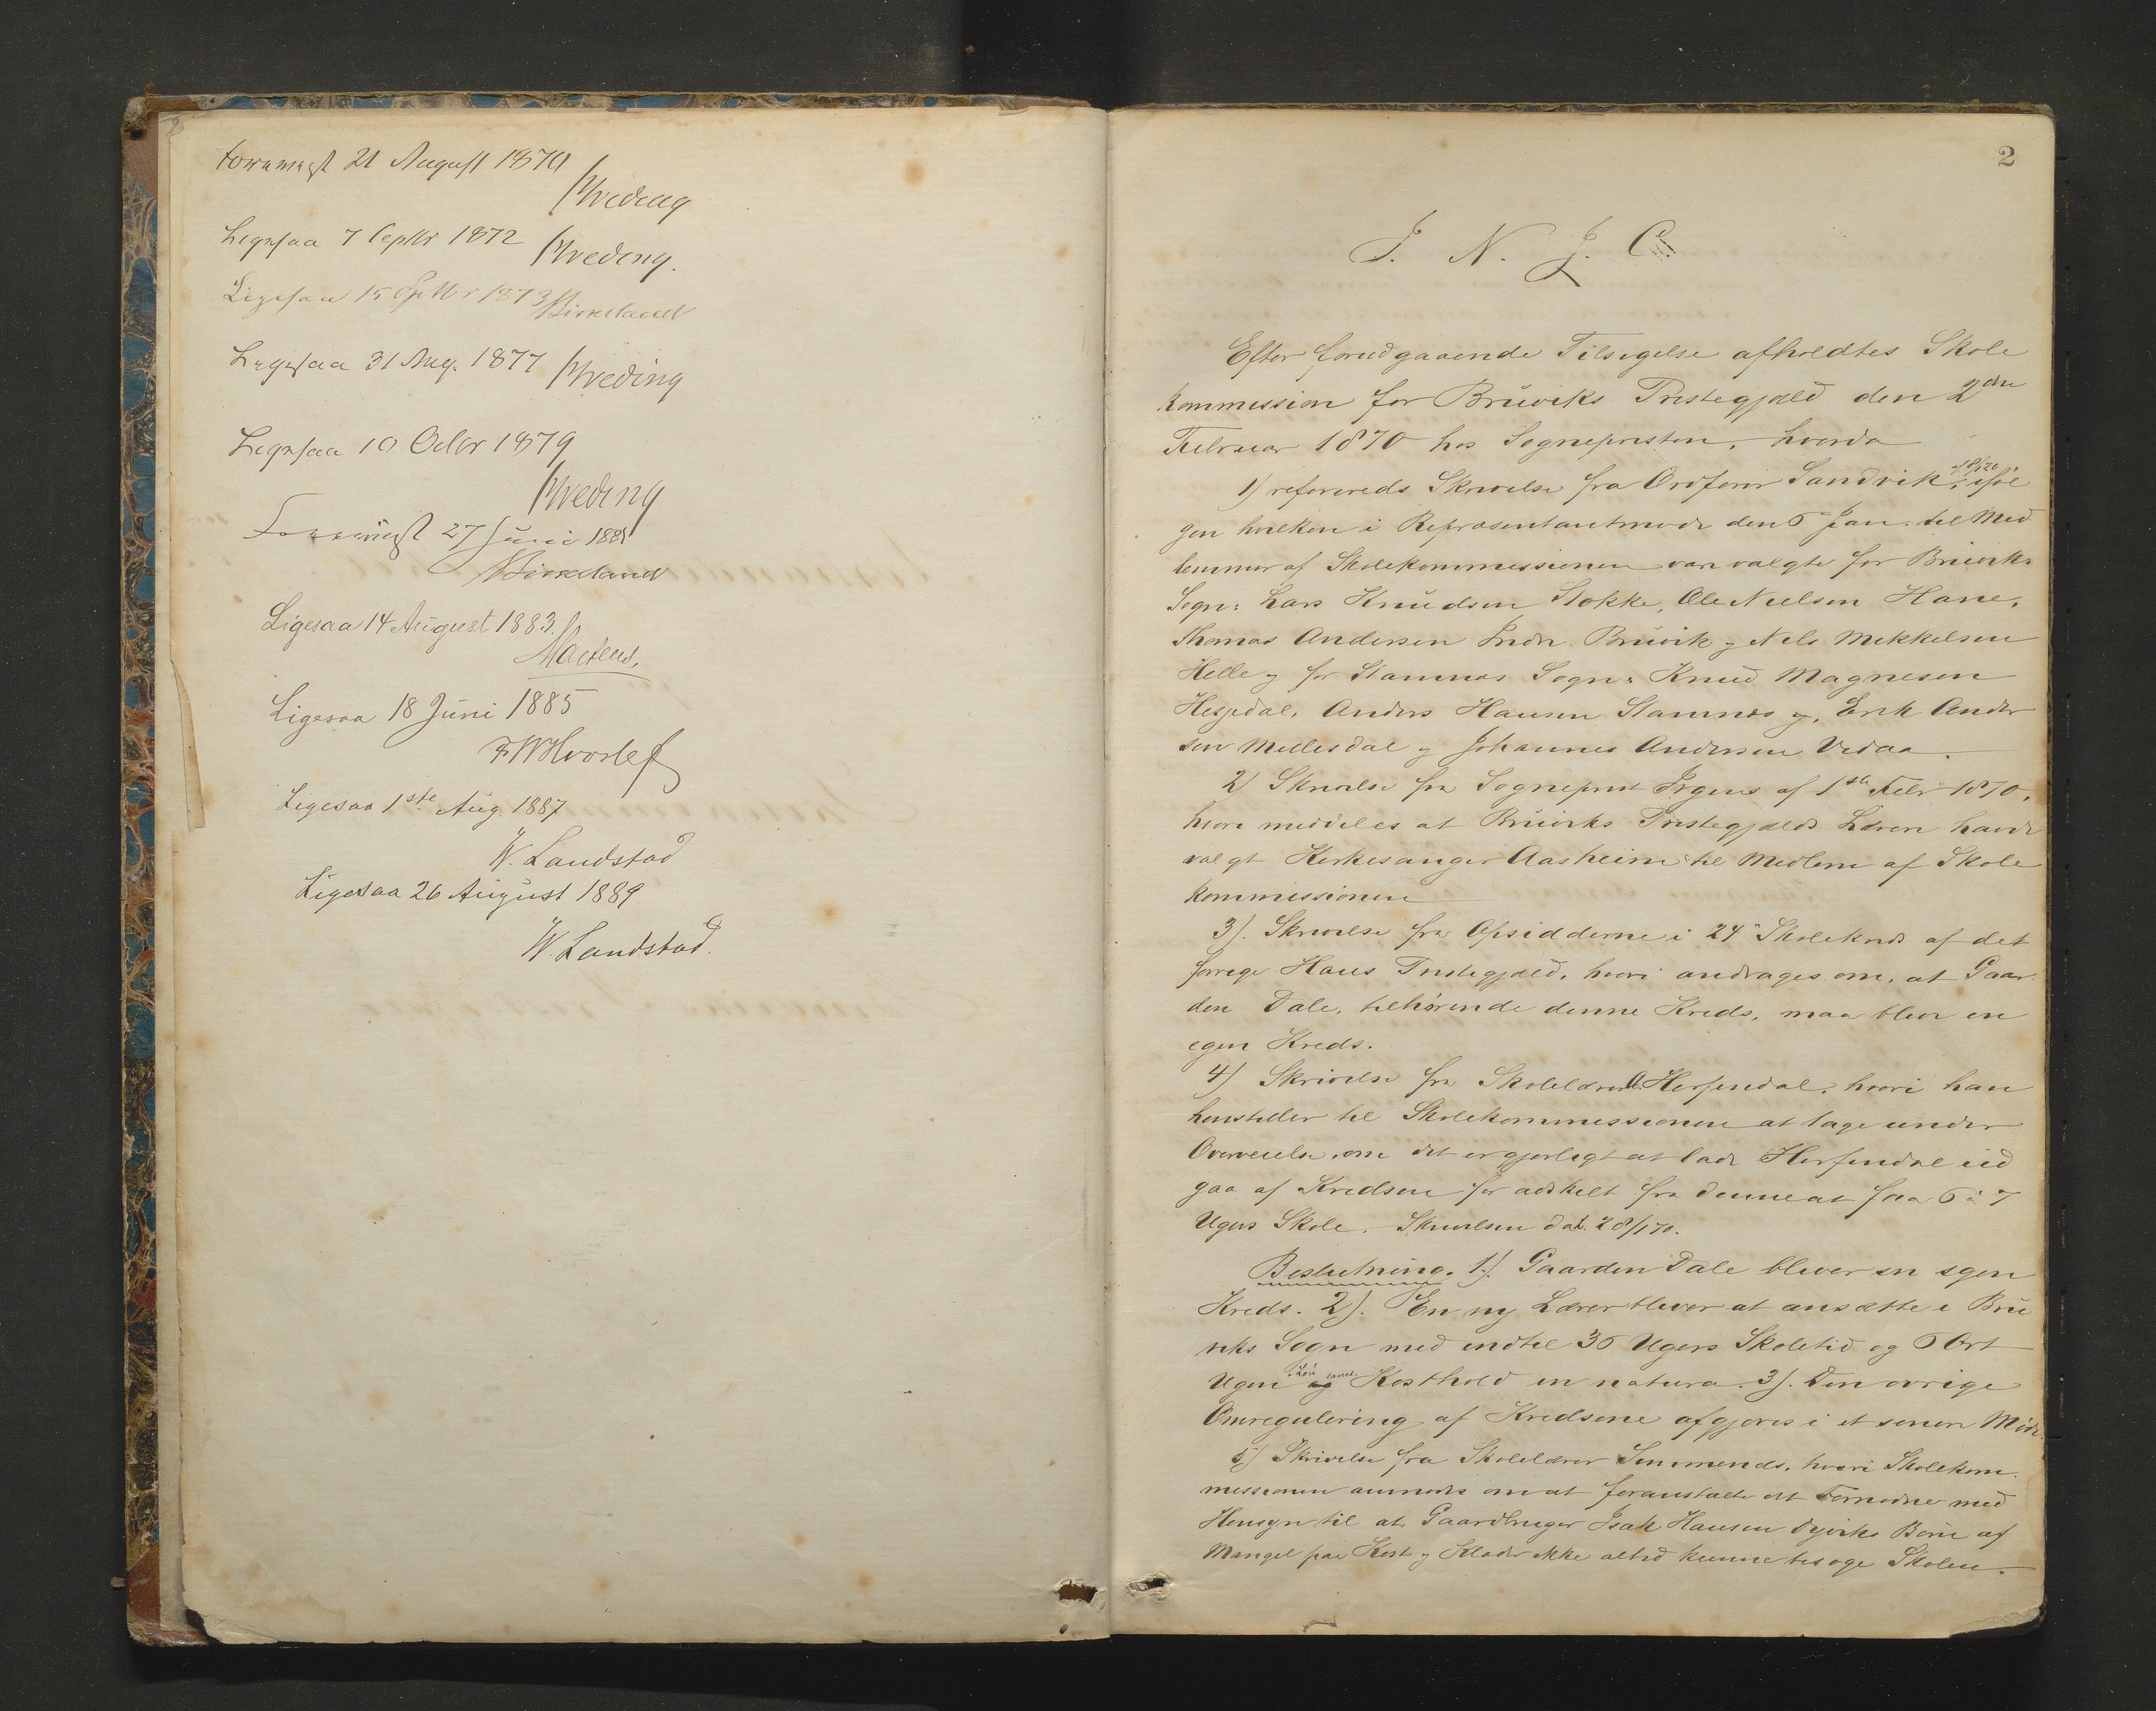 Forevist 21 August 1870
Hveding
Ligesaa 7 Septbr 1872
Hveding.
Ligesaa 15 Septbr 1873
Birkeland
Ligesaa 31 Aug. 1877
Hveding
Ligesaa 10 Octbr 1879
Hveding
Forevist 27 Juni 1881
Birkeland
Ligesaa 14 August 1883.
Martens.
Ligesaa 18 Juni 1885
FW
Ligesaa 1ste Aug. 1887
W. Landstad
Ligesaa 26 August 1889
W. Landstad.
2
J. N. J. C.
Efter forudgaaende Tilsigelse afholdtes Skole
kommission for Bruviks Prestegjæld den 2den
Februar 1870 hos Sognepresten, hvorda
1) refereredes Skrivelse fra Ordfører Sandvik, iføl
gen hvilken i Repræsentantmøde den 6 Jan. til Med
lemmer af Skolekommissionen var valgte for Bruviks
Sogn: Lars Knudsen Stokke, Ole Nielsen Hane,
Thomas Andersen Indr. Bruvik og Nils Mikkelsen
Helle og for Stamnes Sogn: Knud Magnesen
Hesjedal, Anders Hansen Stamnes og, Erik Ander
sen Mellesdal og Johannes Andersen Vedaa.
2) Skrivelse fra Sogneprest Irgens af 1ste Febr 1870,
hvori meddeles at Bruviks Prestegjælds Lærere havde
valgt Kirkesanger Aasheim til Medlem af Skole
kommissionen
3). Skrivelse fra Opsidderne i 24de Skolekreds af det
forrige Haus Prestegjæld, hvori andrages om, at Gaar
den Dale, tilhørende denne Kreds, maa blive en
egen Kreds.
4) Skrivelse fra Skolelærer O. Herfindal, hvori han
henstiller til Skolekommissionen at tage under
Overveielse, om det er gjørligt at lade Herfindal ud
gaa af Kredsen for adskilt fra denne at faa 6 à 7
Ugers Skole. Skrivelsen dat. 28/1 70.
Beslutning. 1). Gaarden Dale bliver en egen
Kreds. 2). En ny Lærer bliver at ansætte i Bru
viks Sogn med indtil 36 Ugers Skoletid og 6 Ort
Ugen i Løn samt Kosthold in natura. 3). Den øvrige
Omregulering af Kredsene afgjøres i et senere Møde.
5) Skrivelse fra Skolelærer Simmenæs, hvori Skolekom
missionen anmodes om at foranstalte det Fornødne med
Hensyn til at Gaardbruger Isak Hansen Dyviks Børn af
Mangel paa Kost og Klæder ikke altid kunne besøge Skolen.